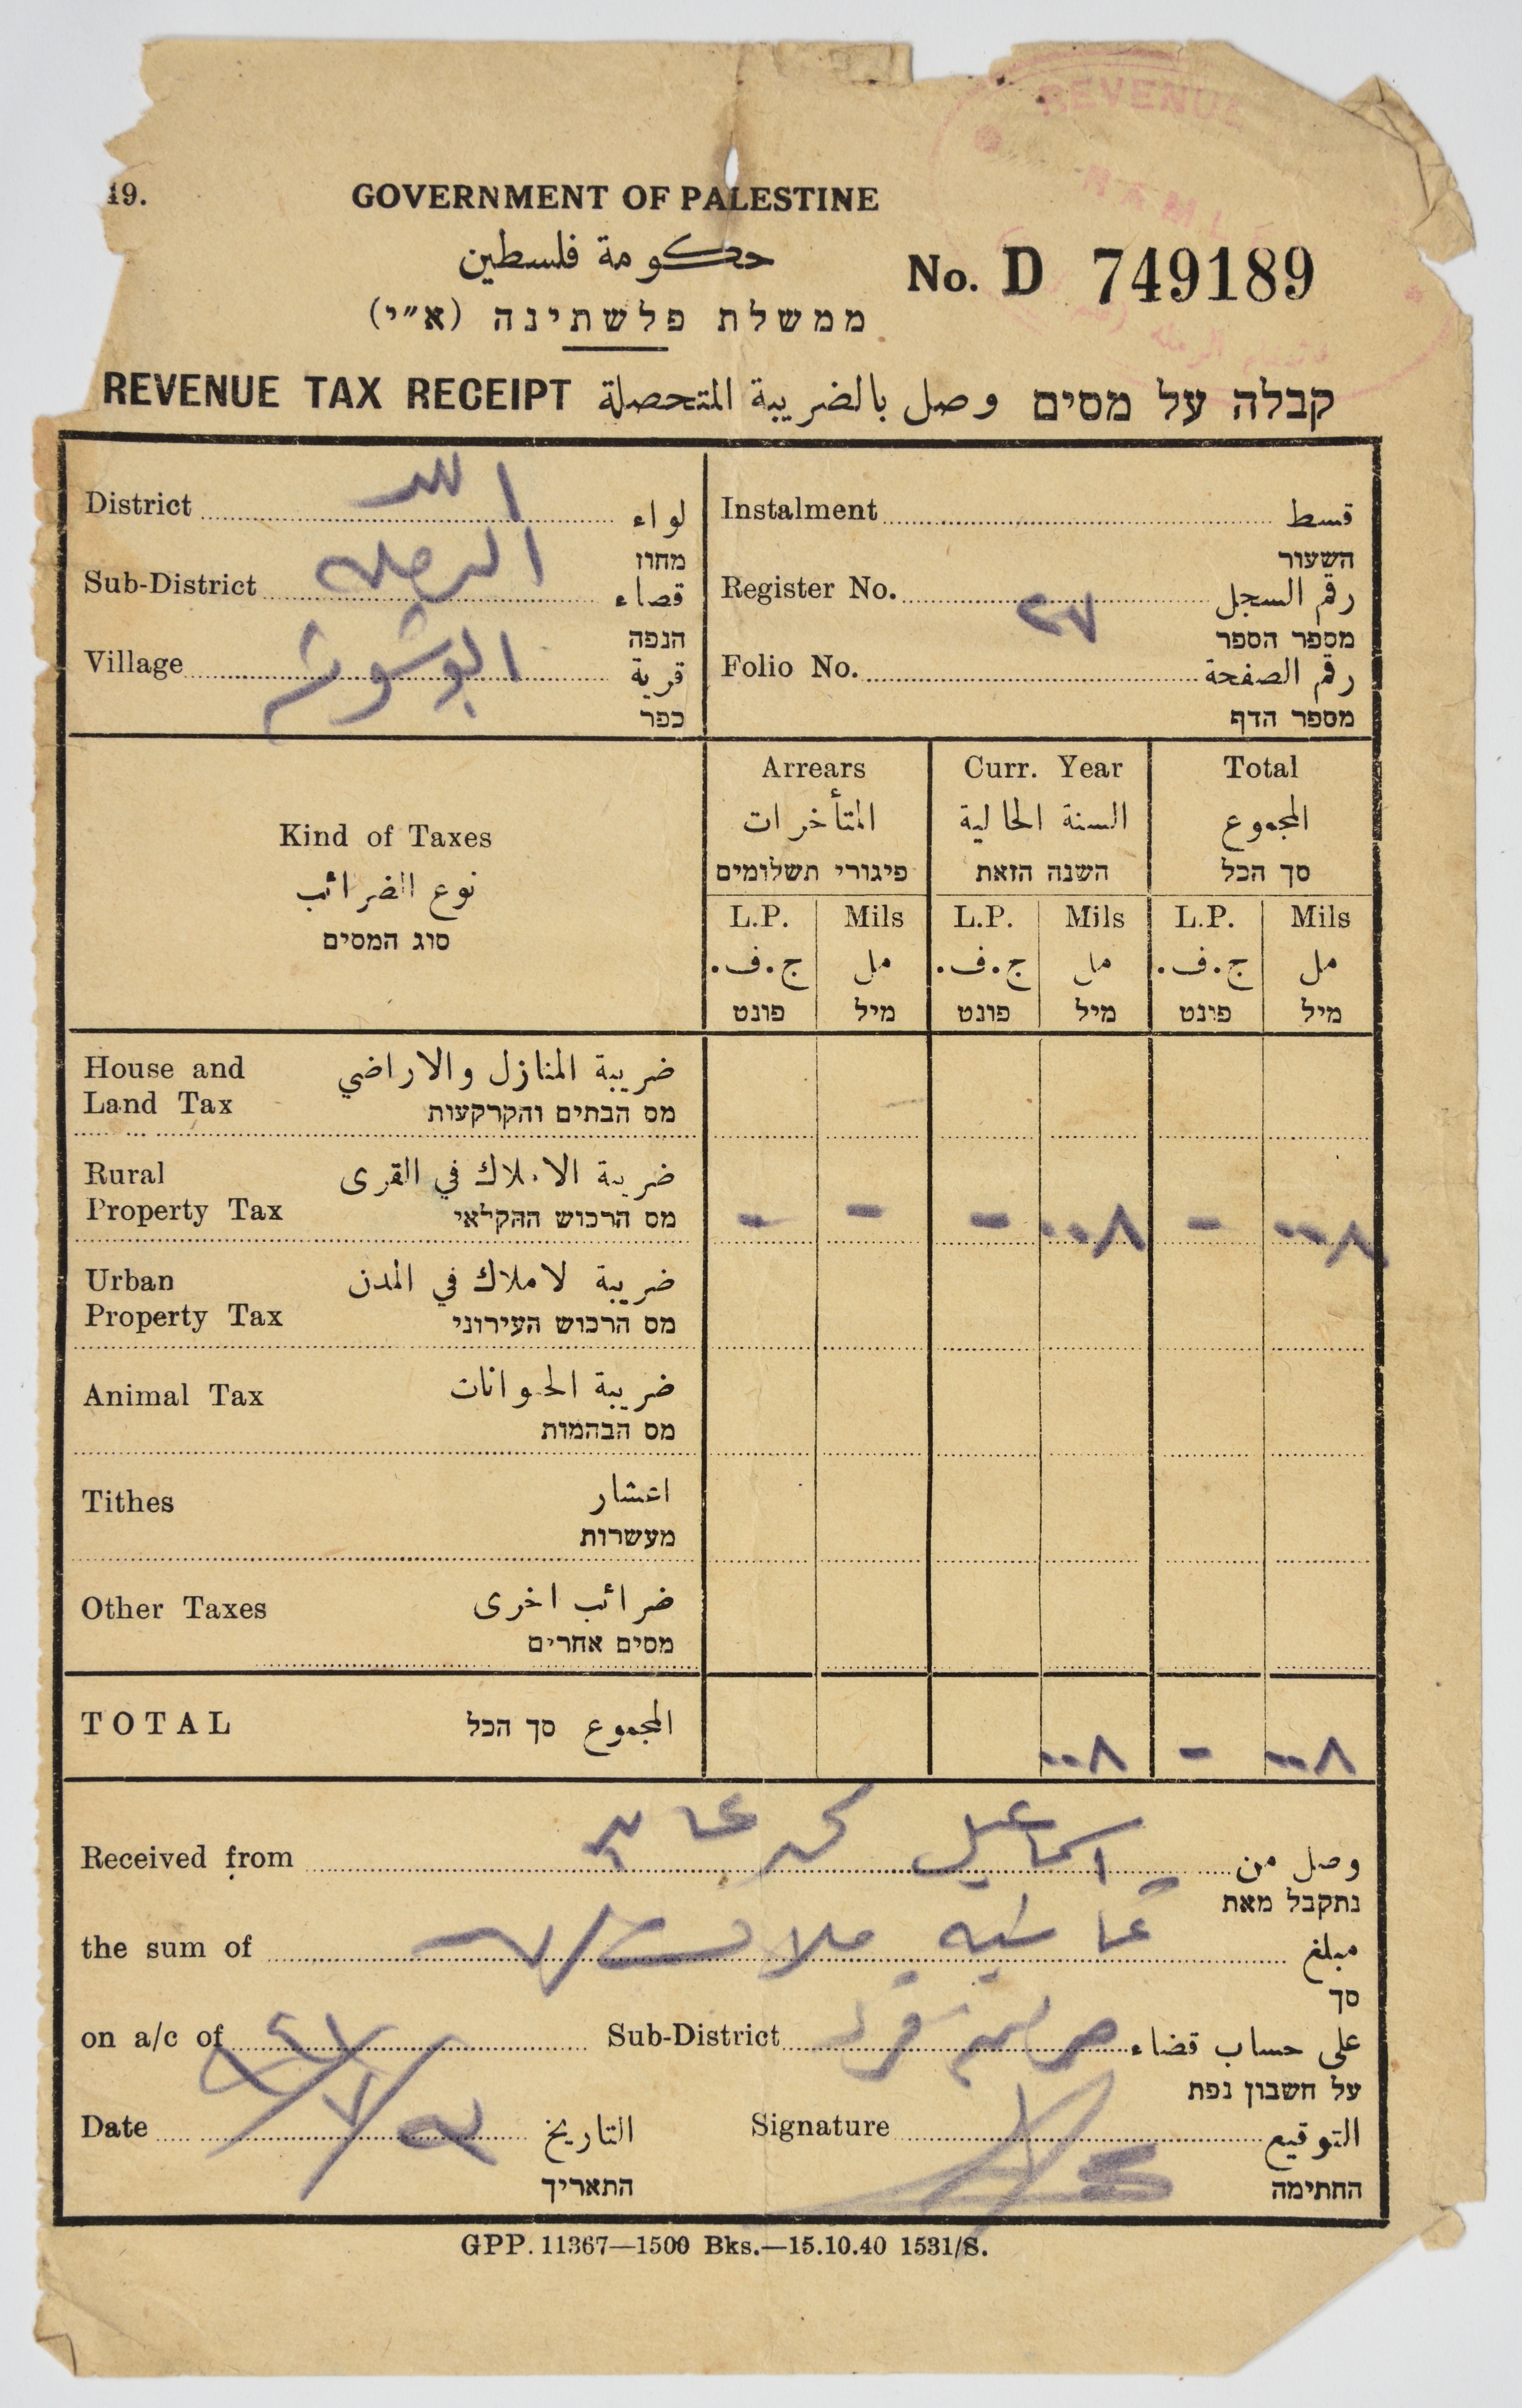 19.
GOVERNMENT OF PALESTINE
حكومة فلسطين
ממשלת פלשתינה (א״י)
No. D 749189
REVENUE
RAMLE
REVENUE TAX RECEIPT وصل بالضريبة المتحصلة קבלה על מסים
District اللد لواء
מחוז
Sub-District الرمله قضاء
הנפה
Village ابو شوشه قرية
כפר
Instalment قسط
השעור
Register No. ٢٧ رقم السجل
מספר הספר
Folio No. رقم الصفحة
מספר הדף
Kind of Taxes
نوع الضرائب
סוג המסים
Arrears Curr. Year Total
المتأخرات السنة الحالية المجموع
פיגורי תשלומים השנה הזאת סך הכל
L.P. Mils L.P. Mils L.P. Mils
ج.ف. مل ج.ف. مل ج.ف. مل
פונט מיל פונט מיל פונט מיל
House and ضريبة المنازل والاراضي
Land Tax מס הבתים והקרקעות
Rural ضريبة الاملاك في القرى
Property Tax מס הרכוש החקלאי - - - ٠٠٨ - ٠٠٨
Urban ضريبة لاملاك في المدن
Property Tax מס הרכוש העירוני
Animal Tax ضريبة الحيوانات
מס הבהמות
Tithes اعشار
מעשרות
Other Taxes ضرائب اخرى
מסים אחרים
TOTAL المجموع סך הכל ٠٠٨ - ٠٠٨
Received from اسماعيل محمد وصل من
נתקבל מאת
the sum of ثمانيه ملات مبلغ
סך
on a/c of Sub-District على حساب قضاء
על חשבון נפת
Date التاريخ Signature التوقيع
התאריך החתימה
GPP. 11367—1500 Bks.—15.10.40 1531/S.